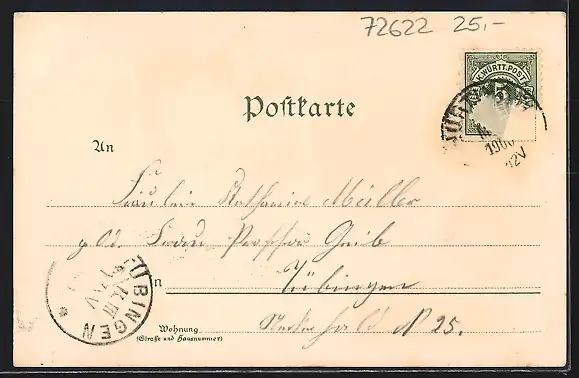 72622 25,-
K. WÜRTT. POST
5
Postkarte
1900
12V
An
Fräulein Katharine Müller
Frau Professor Geib
in Tübingen
TÜBINGEN
Wohnung N 25.
(Straße und Hausnummer)